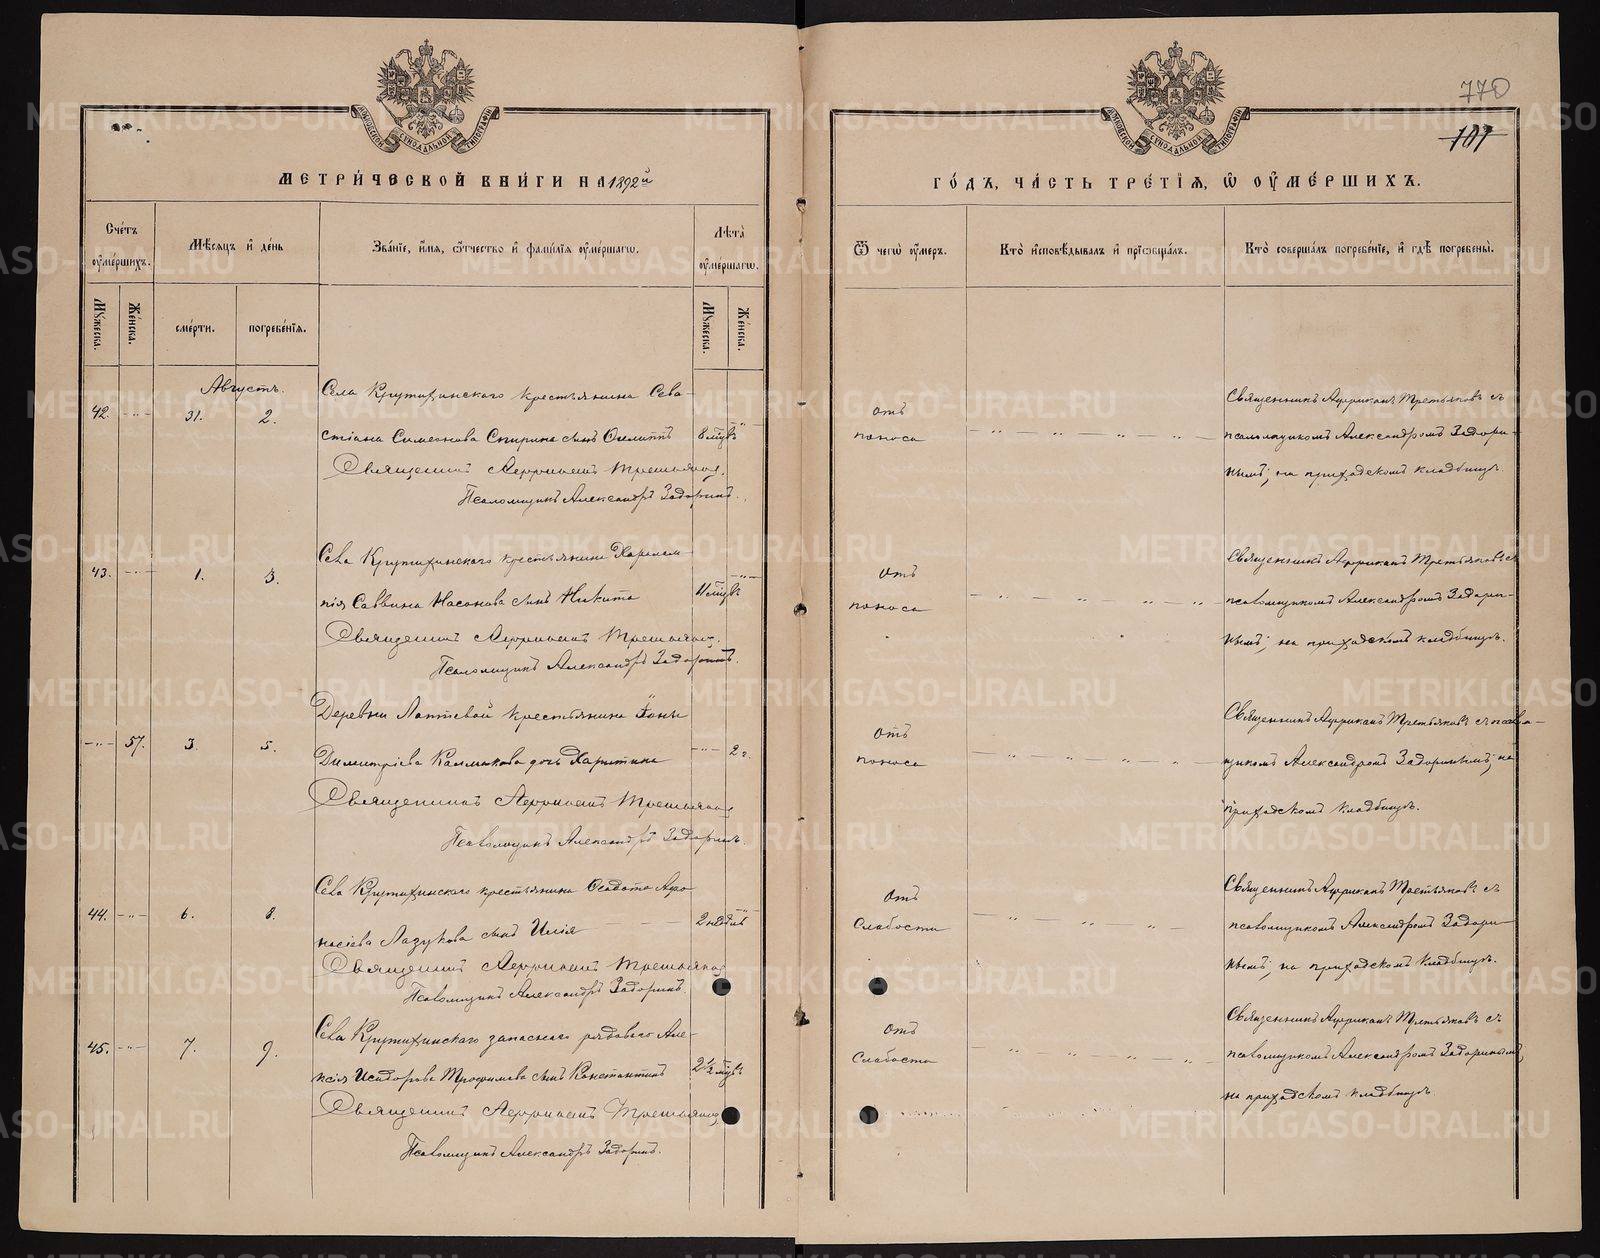 770
101
МЕТРИ́ЧЕСКОЙ КНИ́ГИ НА 1892й
ГО́ДЪ, ЧА́СТЬ ТРЕ́ТІЯ, Ѿ ОУ҆МЕ́РШИХЪ.
Сче́тъ оу҆ме́ршихъ.
Мѣ́сяцъ и҆ де́нь
Зва́нїе, и҆́мя, ѻ҆́тчество и҆ фами́лїя оу҆ме́ршагѡ.
Лѣ́та оу҆ме́ршагѡ.
Ѿ чегѡ̀ оу҆́меръ.
Кто̀ и҆сповѣ́дывалъ и҆ прїѡбща́лъ.
Кто̀ соверша́лъ погребе́нїе, и҆ гдѣ̀ погребены̀.
Му́жеска.
Же́нска.
сме́рти.
погребе́нїя.
Му́жеска.
Же́нска.
Августъ.
42.
31.
2.
Села Крутихинскаго крестьянина Сева-
стіана Симеонова Спирина сынъ Филиппъ
8 мѣц.
Священникъ Африканъ Третьяковъ.
Псаломщикъ Александръ Задоринъ.
отъ
поноса
Священникъ Африканъ Третьяковъ съ
псаломщикомъ Александромъ Задори-
нымъ; на приходскомъ кладбищѣ.
43.
1.
3.
Села Крутихинскаго крестьянина Харлам-
пія Саввина Насонова сынъ Никита
Священникъ Африканъ Третьяковъ.
Псаломщикъ Александръ Задоринъ.
отъ
поноса
Священникъ Африканъ Третьяковъ съ
псаломщикомъ Александромъ Задори-
нымъ; на приходскомъ кладбищѣ.
57.
3.
5.
Деревни Лаптевой крестьянина Іоны
Димитріева Калмакова дочь Харитина
2 г.
Священникъ Африканъ Третьяковъ
Псаломщикъ Александръ Задоринъ.
отъ
поноса
Священникъ Африканъ Третьяковъ съ псало-
мщикомъ Александромъ Задоринымъ; на
приходскомъ кладбищѣ.
44.
6.
8.
Села Крутихинскаго крестьянина Ѳеодота Аѳа-
насіева Лазукова сынъ Илія
2 недѣль
Священникъ Африканъ Третьяковъ
Псаломщикъ Александръ Задоринъ.
отъ
слабости
Священникъ Африканъ Третьяковъ съ
псаломщикомъ Александромъ Задори-
нымъ; на приходскомъ кладбищѣ.
45.
7.
9.
Села Крутихинскаго запаснаго рядового Але-
ксія Исидорова Трофимова сынъ Константинъ
2 1/2 мѣц.
Священникъ Африканъ Третьяковъ
Псаломщикъ Александръ Задоринъ.
отъ
слабости
Священникъ Африканъ Третьяковъ съ
псаломщикомъ Александромъ Задоринымъ;
на приходскомъ кладбищѣ
METRIKI.GASO-URAL.RU